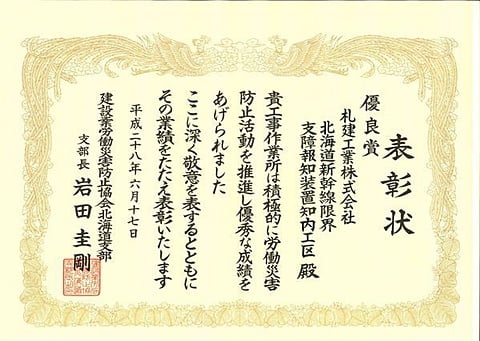 表彰状
優良賞
札建工業株式会社
北海道新幹線限界
支障報知装置知内工区 殿
貴工事作業所は積極的に労働災害
防止活動を推進し優秀な成績を
あげられました
ここに深く敬意を表するとともに
その業績をたたえ表彰いたします
平成二十八年六月十七日
建設業労働災害防止協会北海道支部
支部長 岩田圭剛